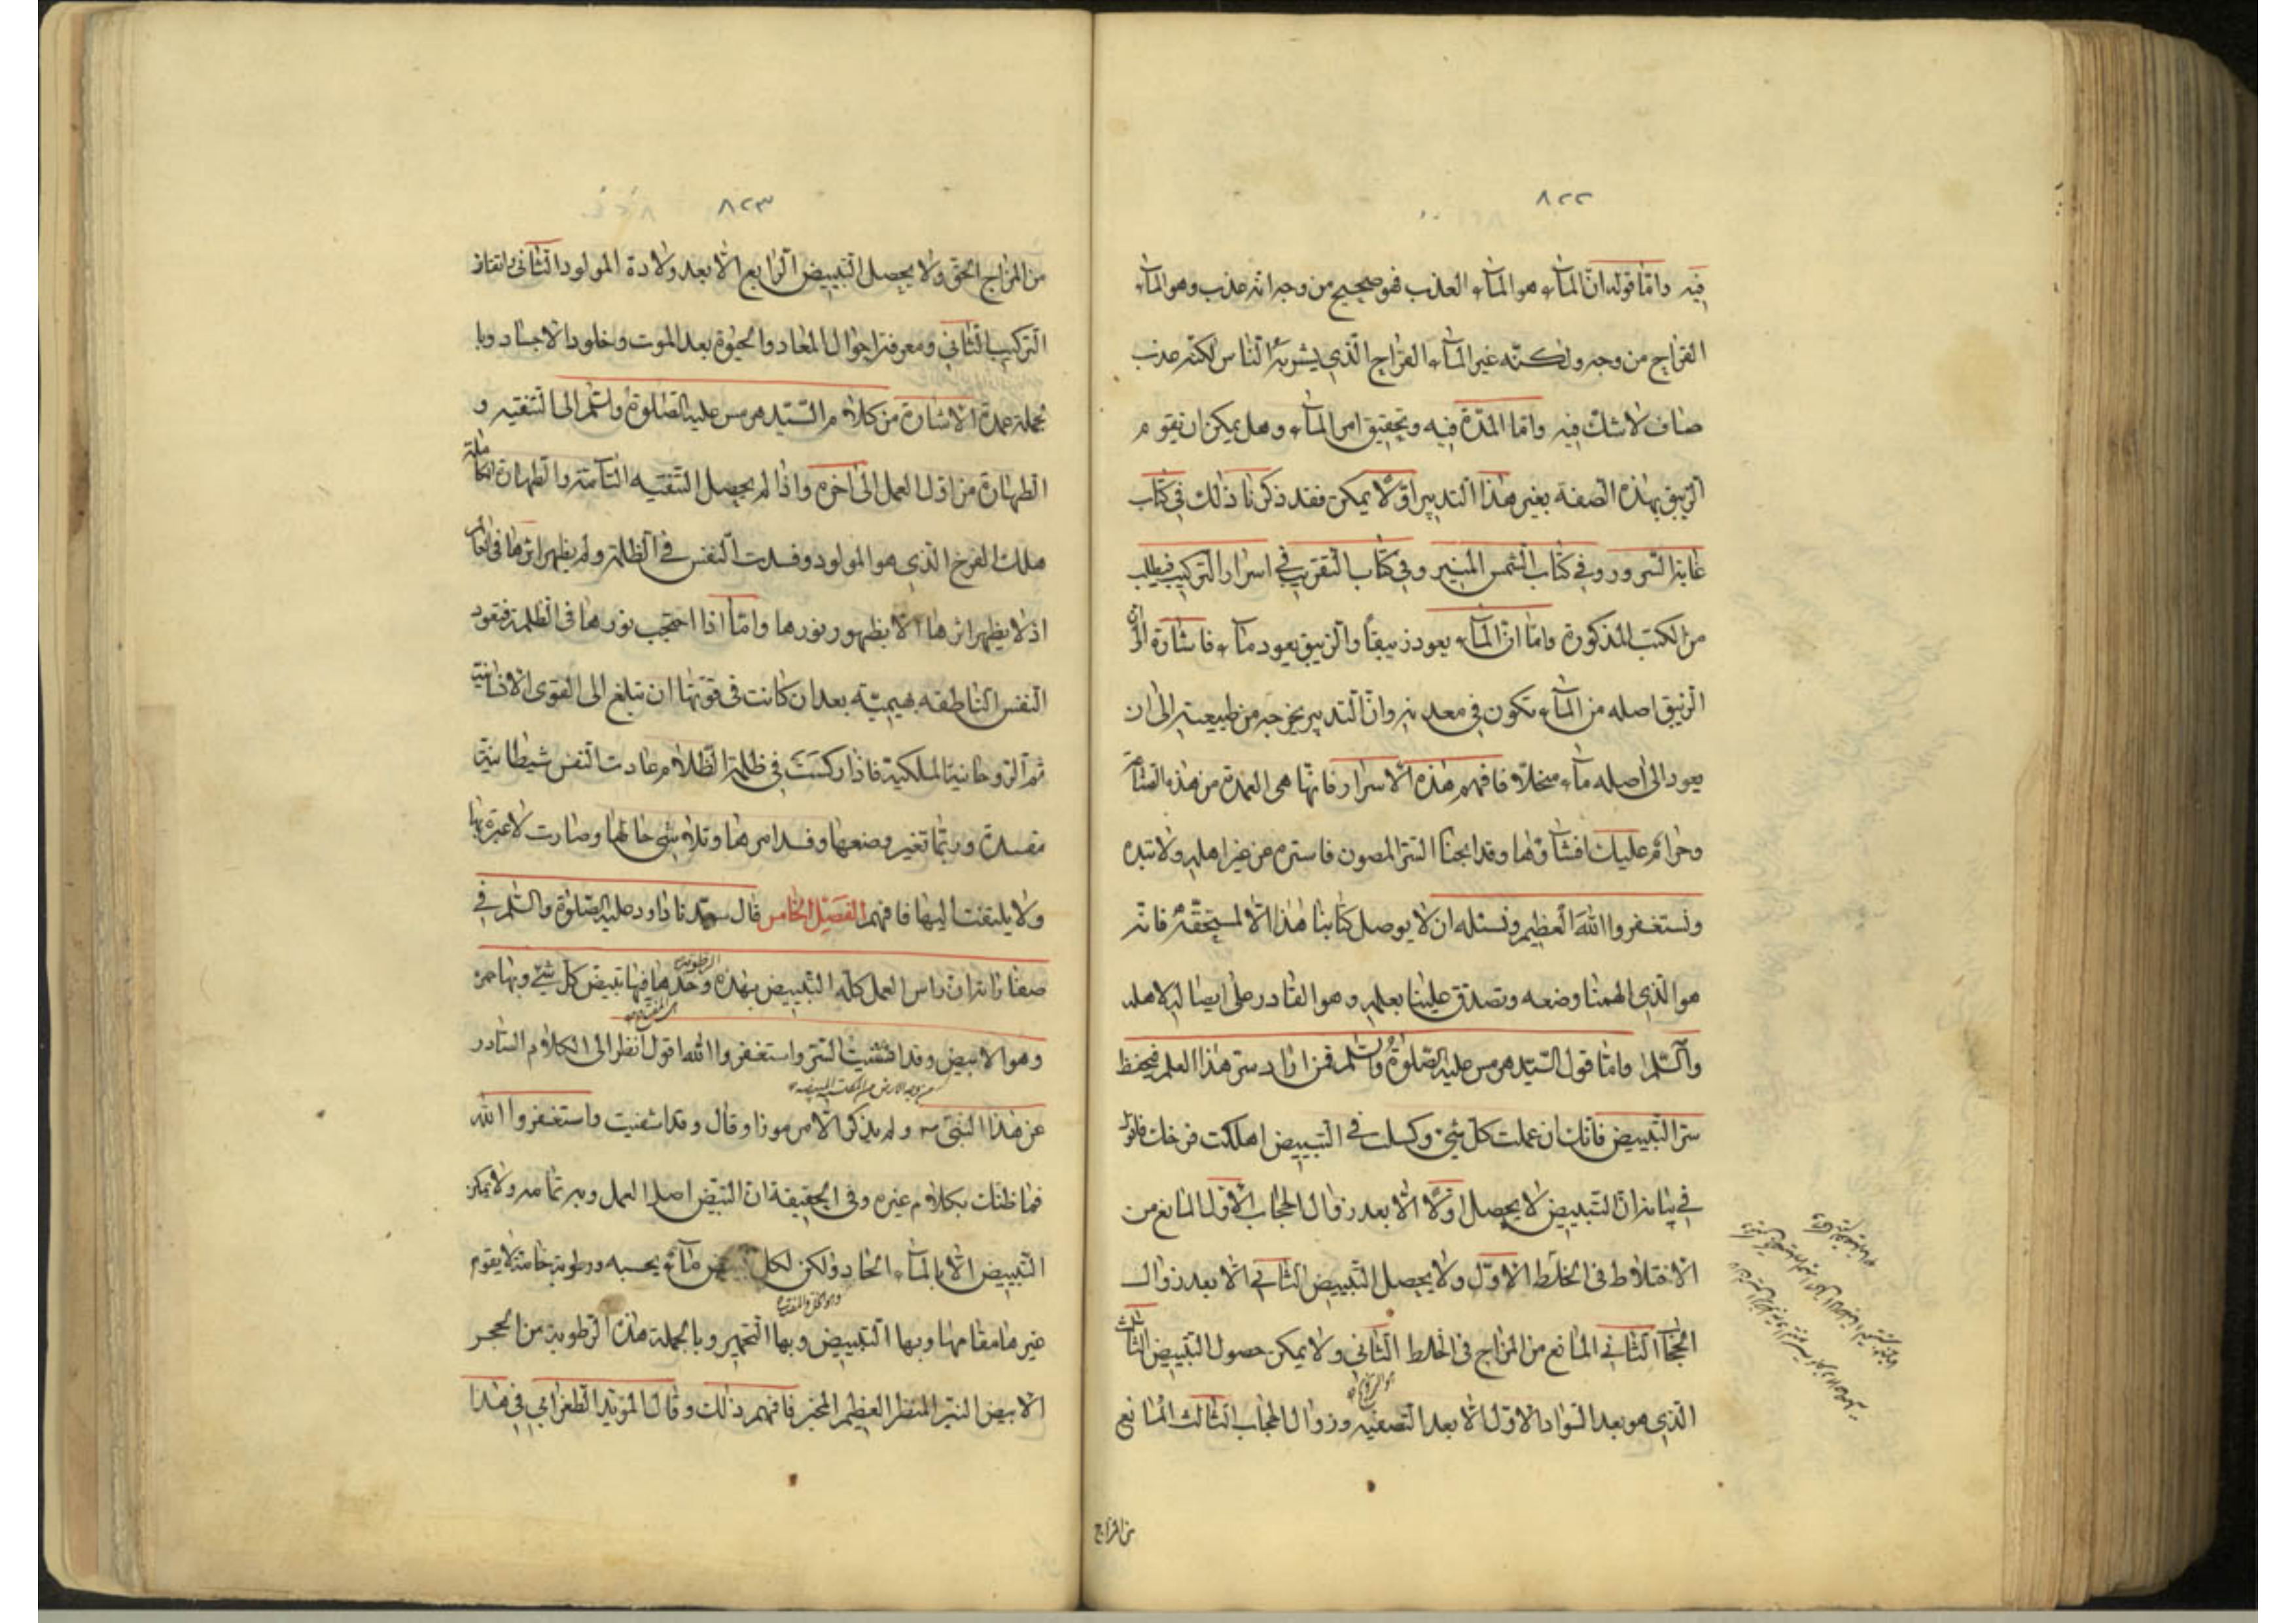 ٨٢٢
فيه واما قوله ان المآء هو المآء العذب فهو صحيح من وجه انه عذب وهو المآء
القراح من وجه ولكنه غير المآء القراح الذي يشربه الناس لكنه عذب
صاف لا شك فيه واما المدة فيه وتحقيق امر المآء وهل يمكن ان يقوم
الزيبق بهذه الصفة بغير هذا التدبير اولا يمكن فقد ذكرنا ذلك في كتاب
غاية السرور وفي كتاب الشمس المنير وفي كتاب التقريب في اسرار التركيب فيطلب
من الكتب المذكورة واما ان المآء يعود زيبقاً والزيبق يعود مآء فاشارة الى ان
الزيبق اصله من المآء تكون في معدنه وان التدبير يخرجه من طبيعته الى ان
يعود الى اصله مآء منحلاً فافهم هذه الاسرار فانها هى العمدة من هذه
وحرام عليك افشاؤها وقد ابحنا السر المصون فاستره عن غير اهله ولا تبده
ونستغفروا الله العظيم ونسئله ان لا يوصل كتابنا هذا الا لمستحقه فانه
هو الذي الهمنا وضعه وتصدق علينا بعلمه وهو القادر على ايصاله لاهله
والسلم واما قول السيد هرمس عليه الصلوة والسلم فمن اراد سر هذا العلم فيحفظ
سر التبييض فانك ان عملت كل شئ وكسلت في التبييض اهلكت فرخك فاقول
في بيانه ان التبييض لا يحصل اولا الا بعد زوال الحجاب الاول المانع من
الاختلاط في الخلط الاول ولا يحصل التبييض الثاني الا بعد زوال
الحجاب الثاني المانع من المزاج في الخلط الثاني ولا يمكن حصول التبييض الثالث
الذي هو بعد السواد الاول الا بعد التصفيه وزوال الحجاب الثالث المانع
من المزاج
٨٢٣
من المزاج الحق ولا يحصل التبييض الرابع الا بعد ولادة المولود الثاني باتقان
التركيب الثاني ومعرفة احوال المعاد والحيوة بعد الموت وخلود الاجساد وبا
لجملة عمدة الاشارة من كلام السيد هرمس عليه الصلوة والسلم الى التنقيه و
الطهارة من اول العمل الى آخره واذا لم يحصل التنقيه التآمة والطهارة الكاملة
هلك الفرخ الذي هو المولود وفسدت النفس في الظلمة ولم يظهر اثرها في
اذ لا يظهر اثرها الا بظهور نورها واما اذا احتجب نورها في الظلمة فتعود
النفس الناطقه بهيميّة بعد ان كانت في قوتها ان تبلغ الى القوى الانسانية
ثم الروحانية الملكية فاذا ركست في ظلمة الظلام عادت النفس شيطانية
مفسدة وربما تغير وضعها وفسد امرها وتلاشى حالها وصارت لا عبرة بها
ولا يلتفت اليها فافهم الفصل الخامس قال سيدنا داود عليه الصلوة والسلم في
الرطوبة
صفارانه ان راس العمل كله التبييض بهذه وحدها فبها تبيض كل شئ وبها حمره
وهو الابيض وقد اشفيت السر واستغفروا الله اقول انظر الى الكلام الصادر
عن هذا النبى ولم يذكر الا مرموزا وقال وقد اشفيت واستغفروا الله
فما ظنك بكلام غيره وفي الحقيقة ان التبيض اصل العمل وبه تمامه ولا يمكن
التبييض الا بالمآء الحاد ولكن لكل مآء بحسبه ورطوبة خاصة لا يقوم
غيرها مقامها وبها التبييض وبها التحمير وبالجملة هذه الرطوبة من الحجر
الابيض النير المنظر العظيم المخبر فافهم ذلك وقال المؤيد الطغرايي في هذا